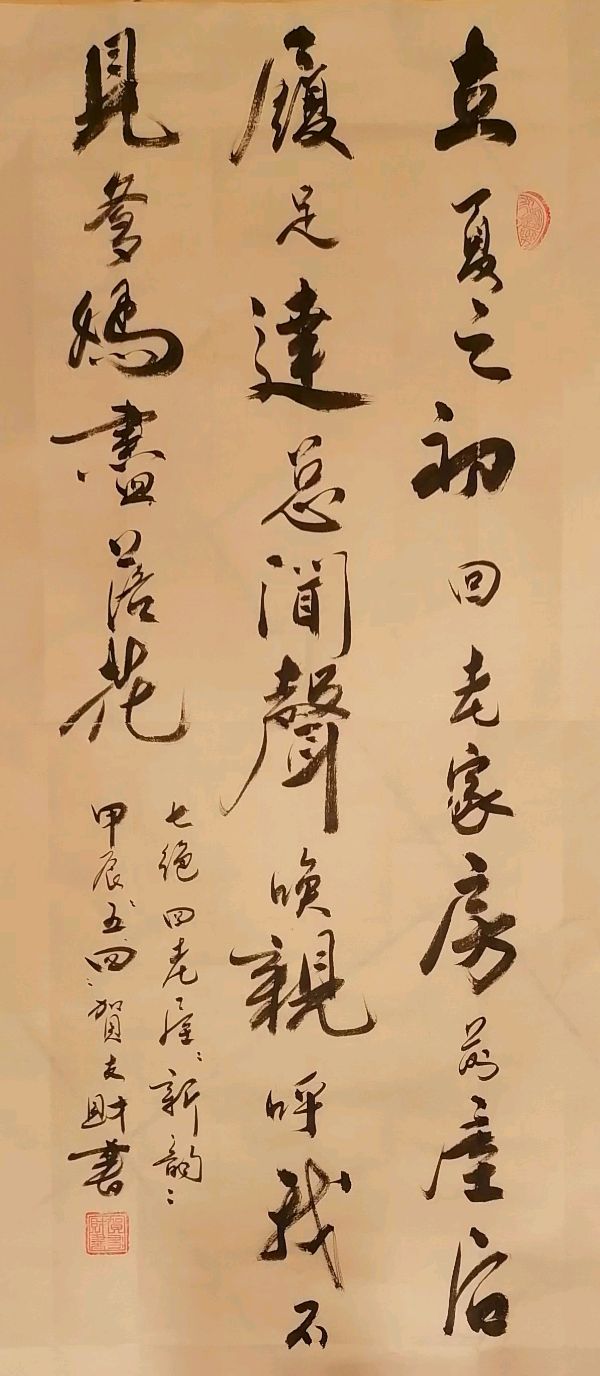 立夏之初回老家房前屋后
履足達总聞聲喚親呼我不
見爹媽盡落花
七绝回老屋新韵
甲辰五四賀友财書